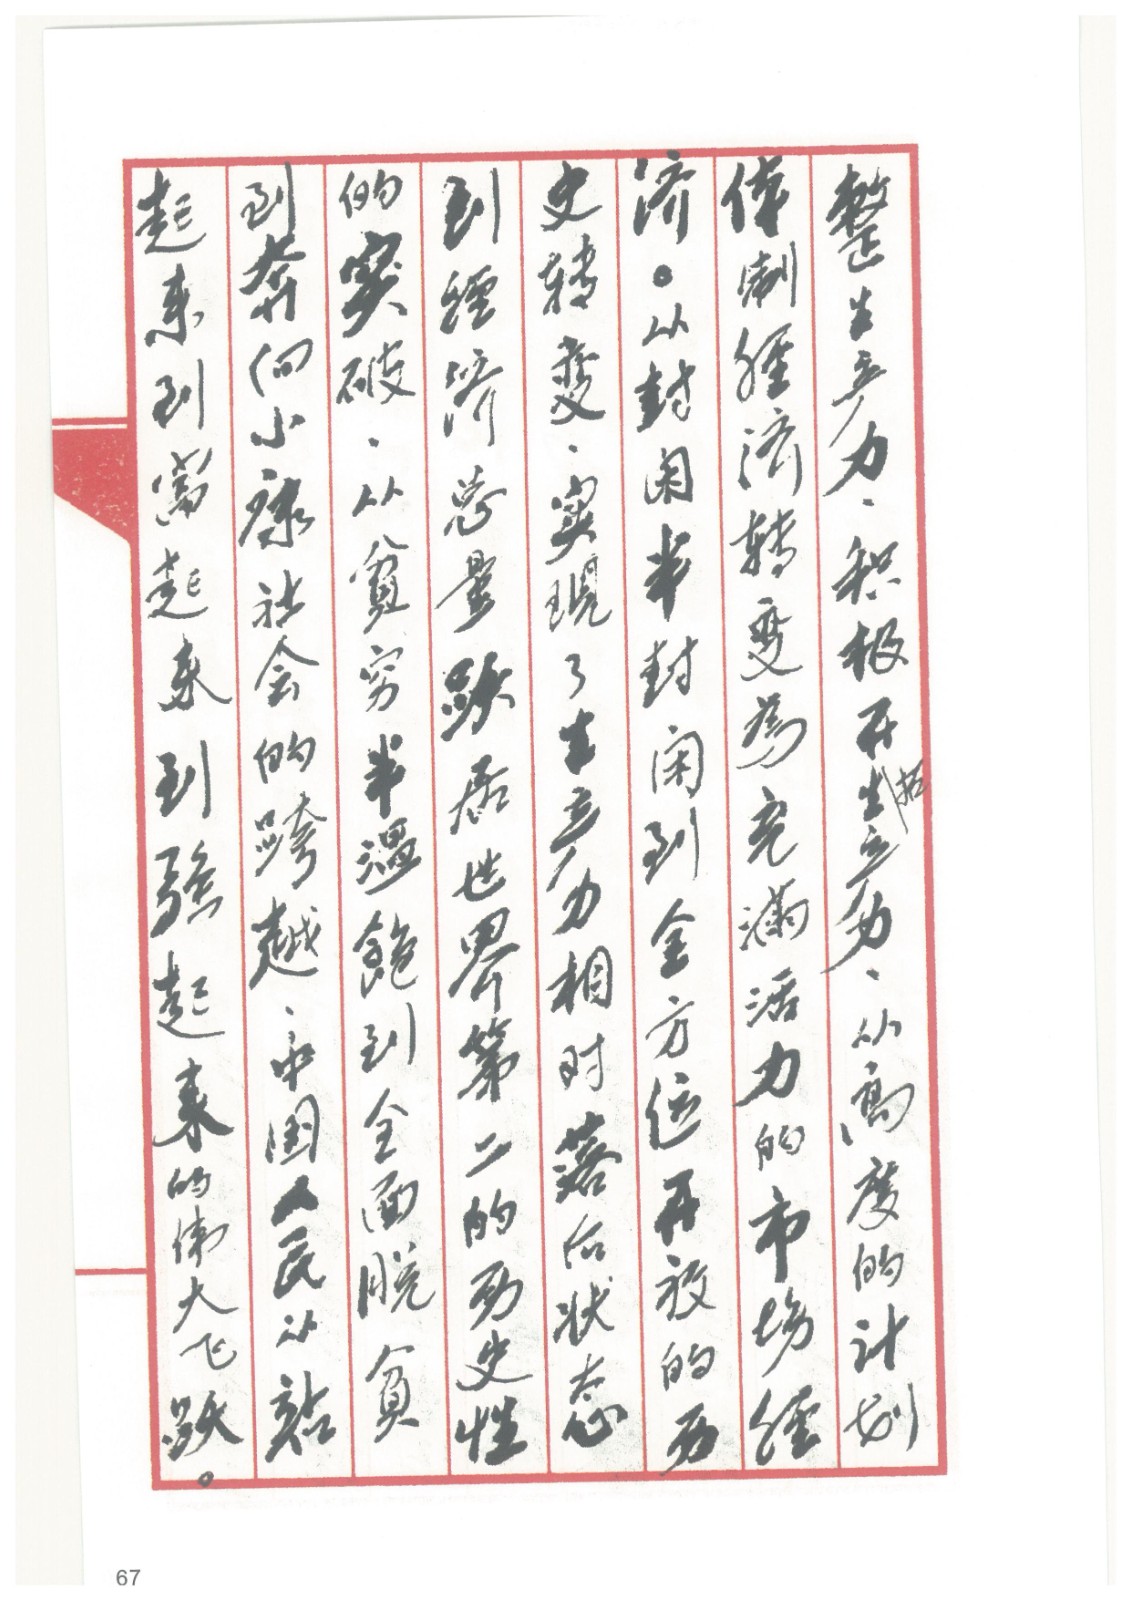 整生产力、积极开拓生产力、从高度的计划
体制經济转变為充滿活力的市场經
济。从封闭半封闭到全方位开放的历
史转变、实現了生产力相对落后状态
到經济总量跃居世界第二的历史性
的突破、从貧穷半温飽到全面脱貧
到奔向小康社会的跨越、中国人民从站
起来到富起来到强起来的伟大飞跃。
67